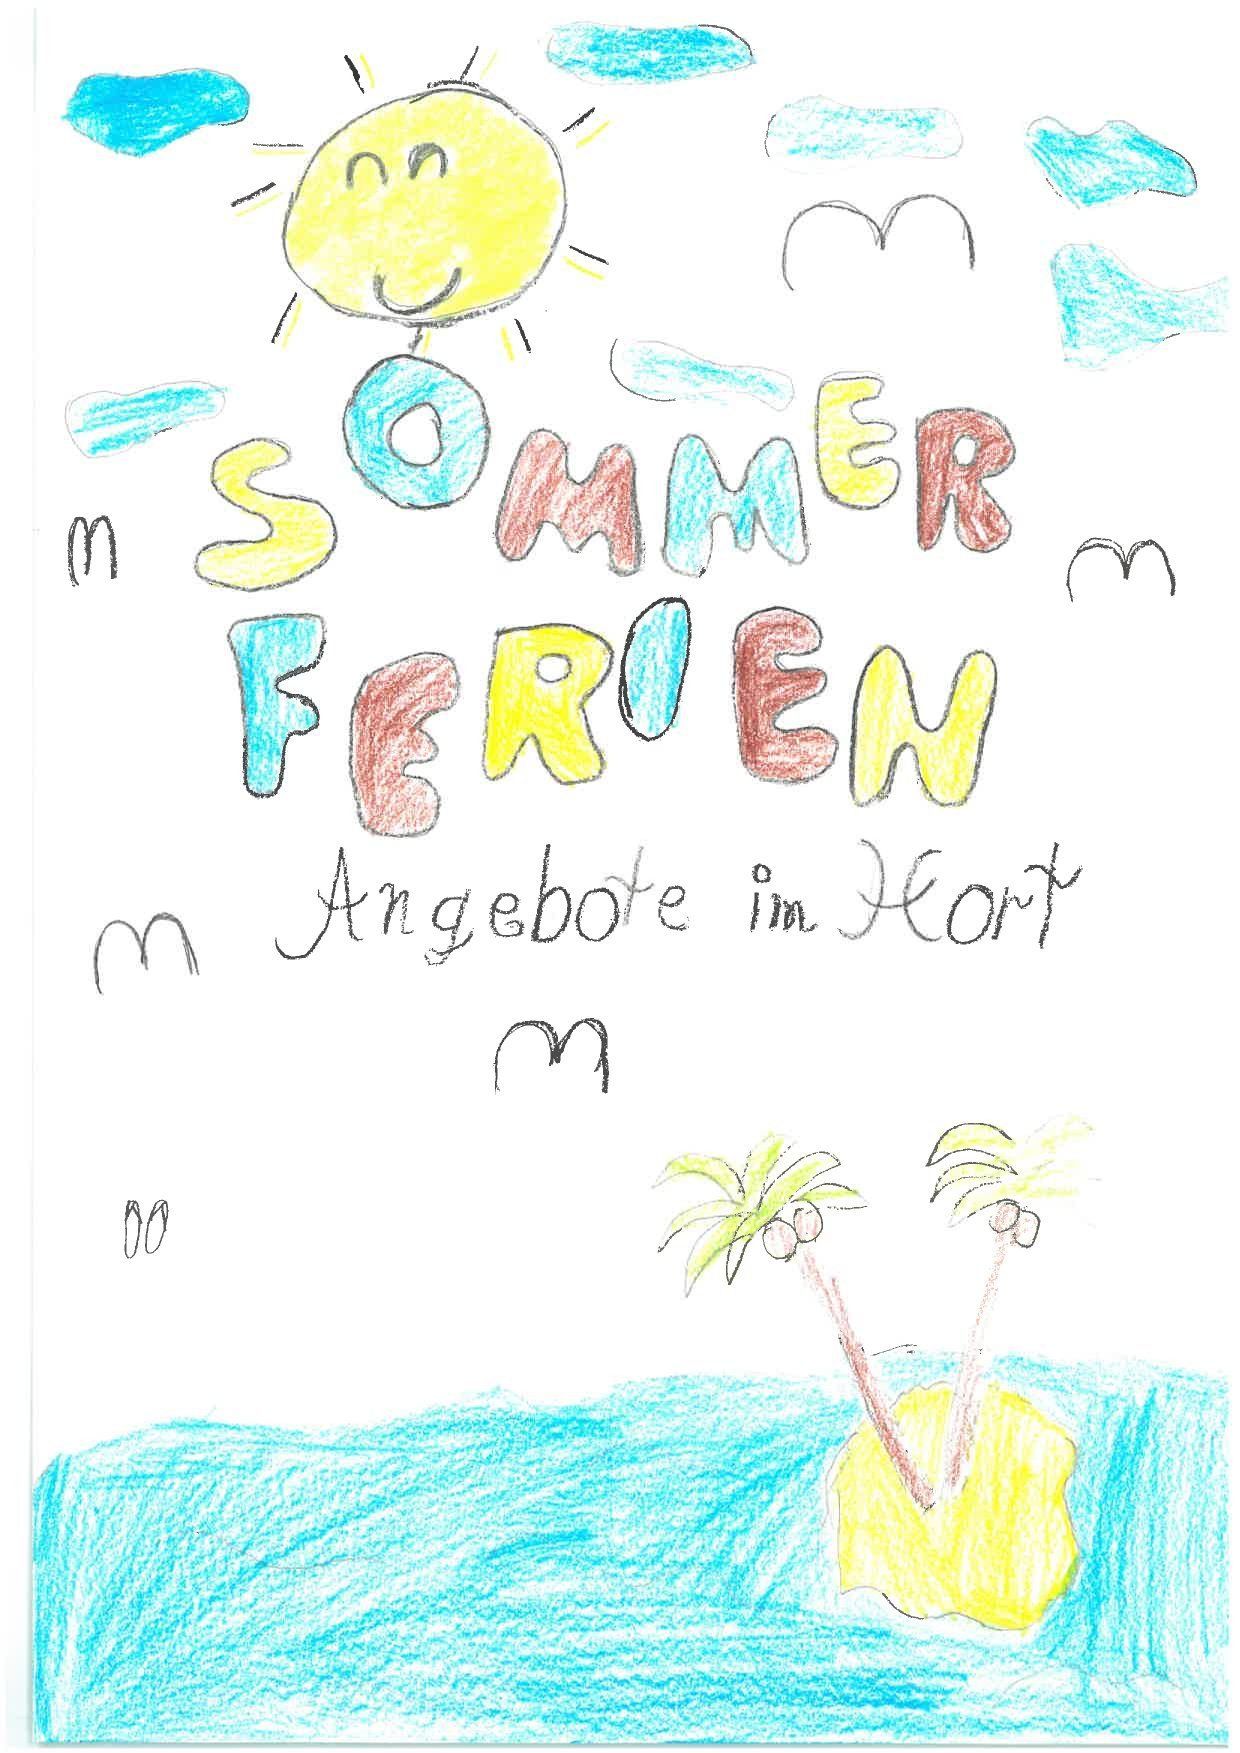 SOMMER
FERIEN
Angebote im Hort